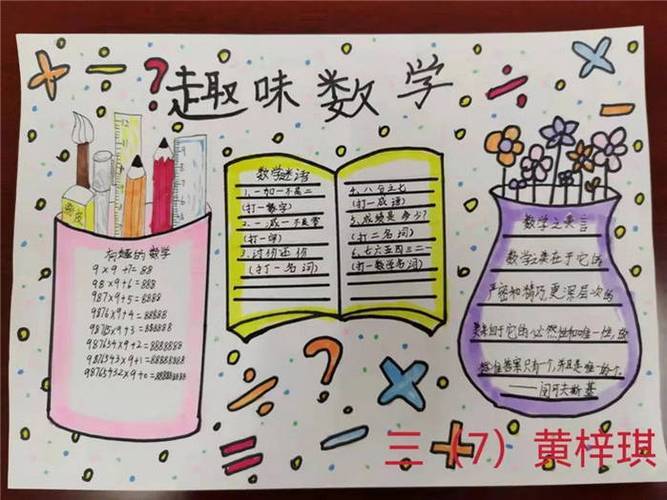 趣味数学
有趣的数学
9×9+7=88
98×9+6=888
987×9+5=8888
9876×9+4=88888
98765×9+3=888888
987654×9+2=8888888
9876543×9+1=88888888
98765432×9+0=888888888
数学谜语
1.一加一不是二
(打一数字)
2.一减一不是零
(打一字)
3.讨价还价
(打一名词)
4.八分之七
(打一成语)
5.成绩是多少?
(打二名词)
6.七六五四三二一
(打一数学名词)
数学之美言
数学之美在于它的
严密和精巧更深层次的
美来自于它的必然性和唯一性,
答案只有一个,并且是唯一的一个。
三（7）黄梓琪